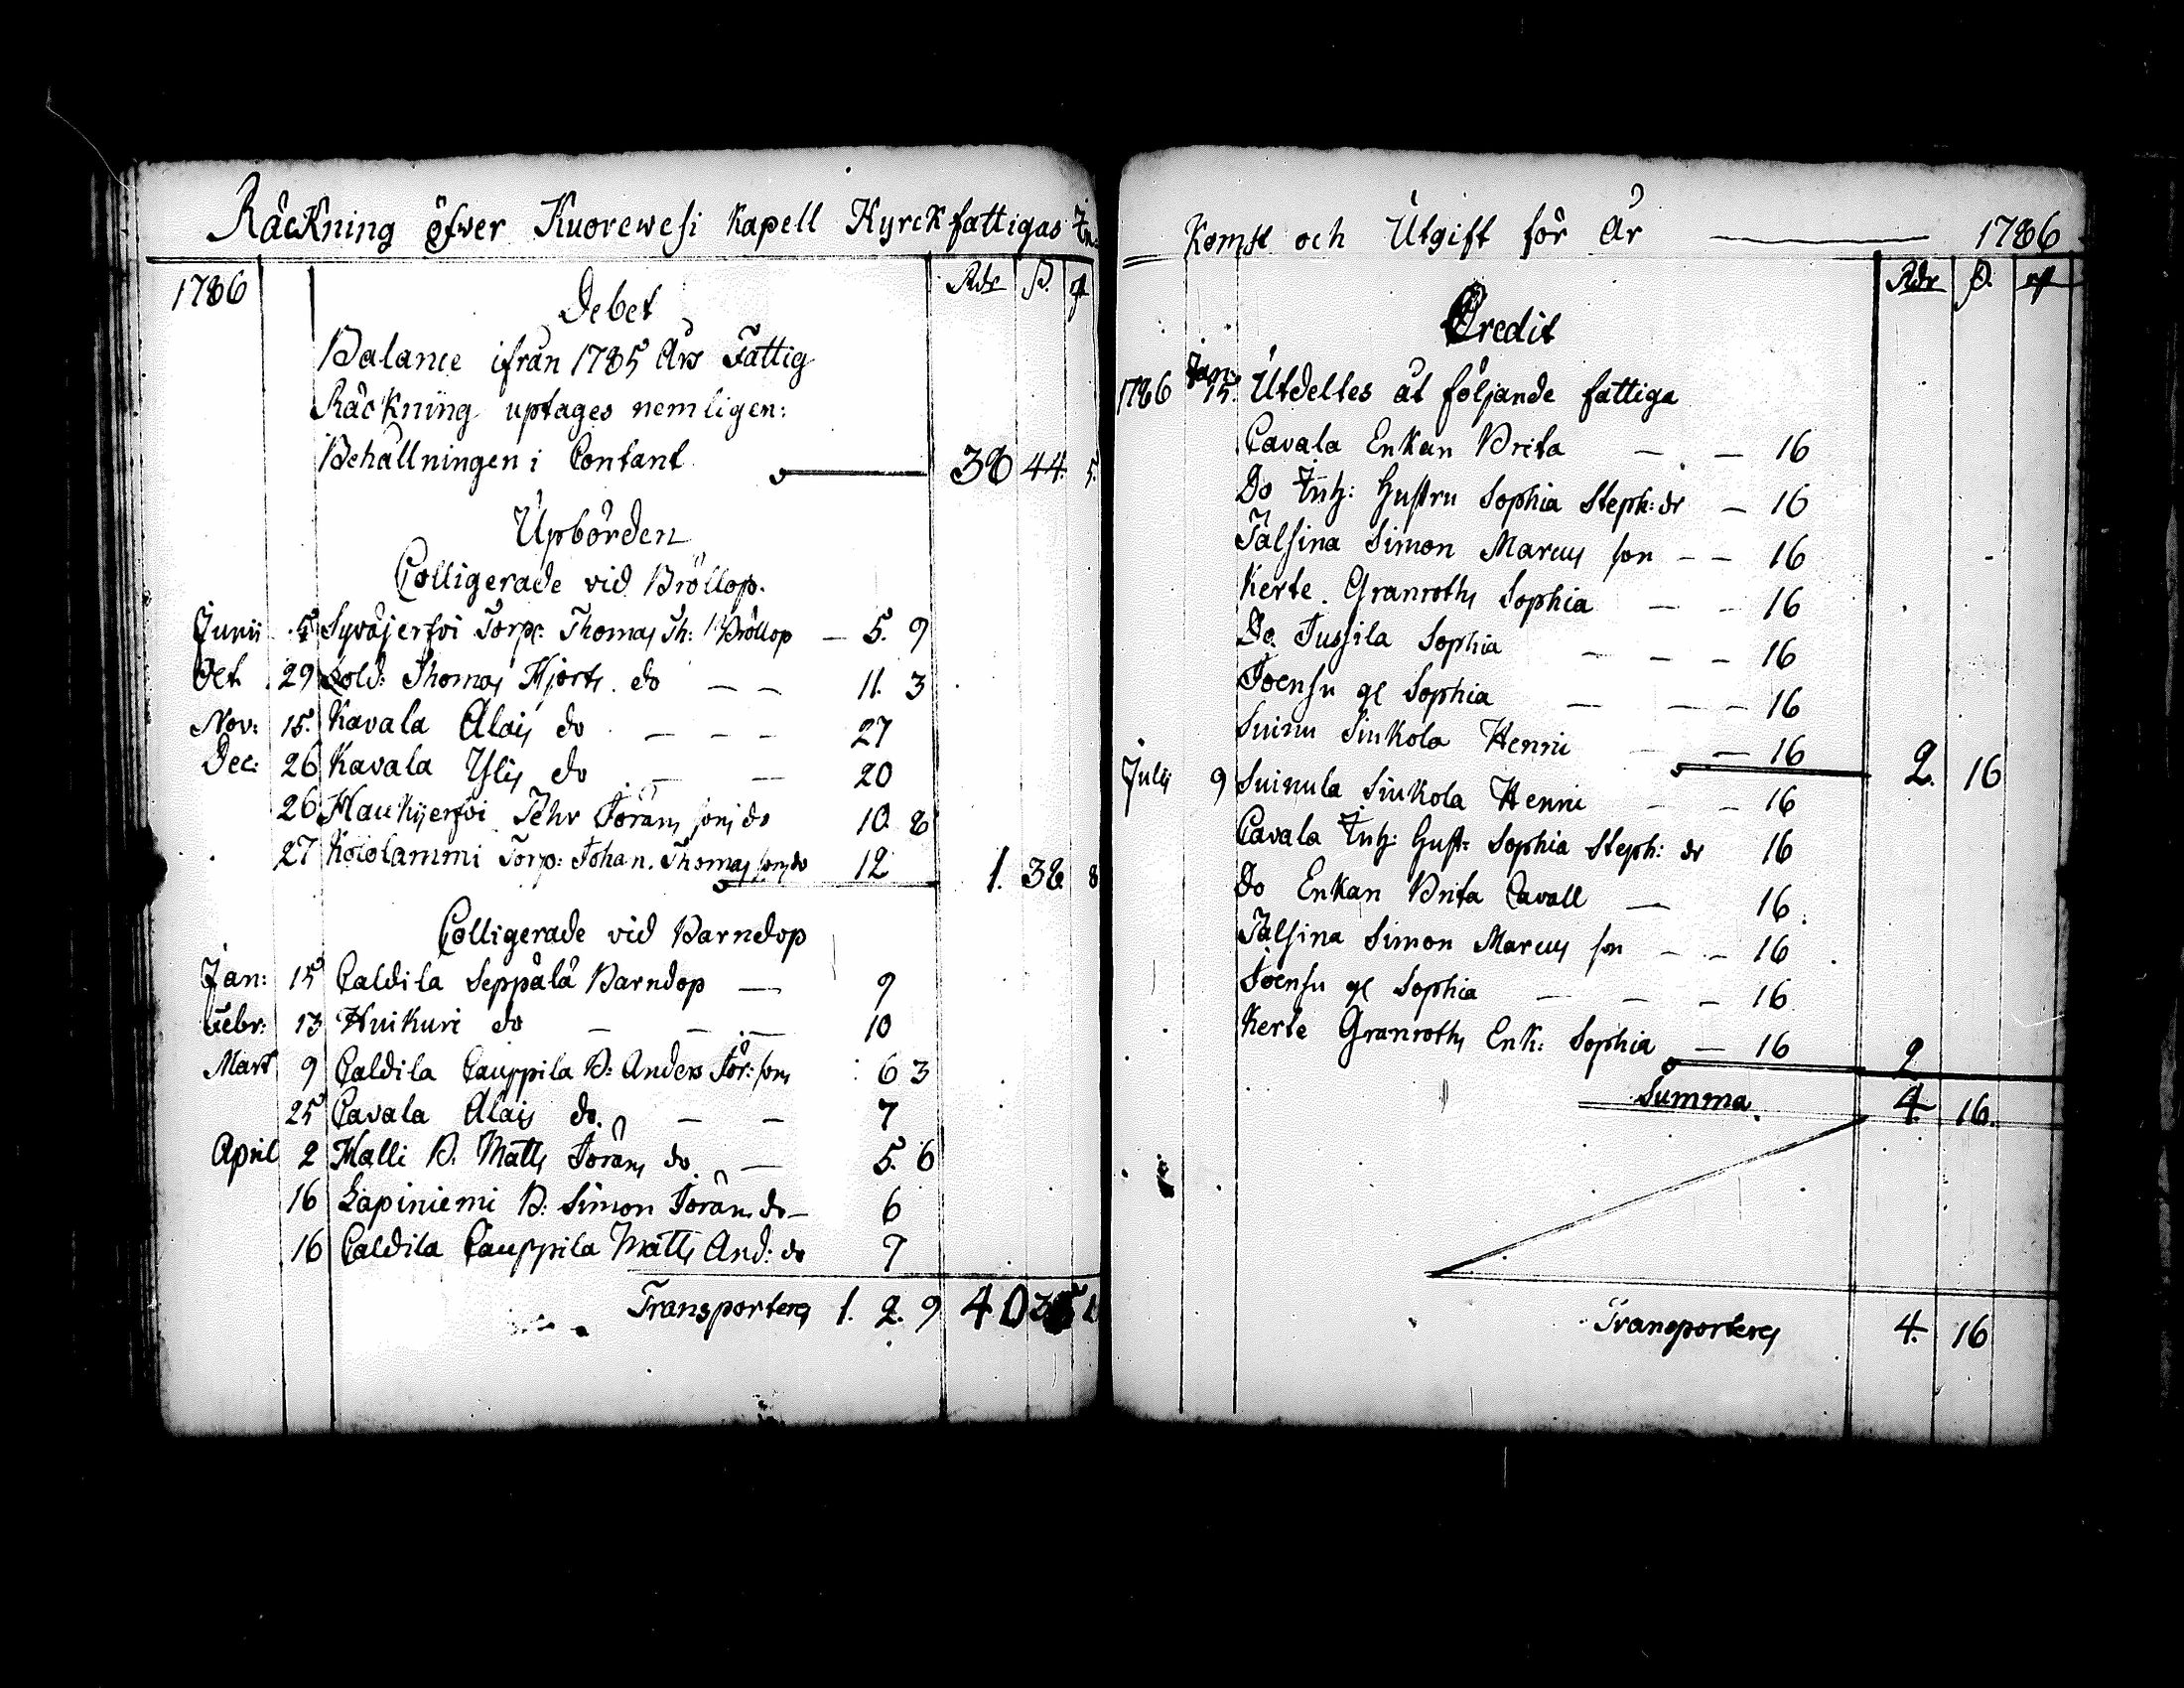 Räckning öfwer Kuorewesi Kapell Kyrck fattigas In-
1786 Rdr ß.
Debet
Balance ifrån 1785 Års Fattig
Räckning uptages nemligen:
Behållningen i Contant 38 44. 5.
Upbörden
Colligerade vid Bröllop.
Junii 5 Syväjerfvi Torp: Thomas Th: Bröllop — 5. 9
Oct 29 Sold: Thomas Hjorts do — — 11. 3
Nov: 15. Kavala Alais do — — — 27
Dec: 26 Kavala Ylis do — — 20
26 Haukijerfvi Jöran sons do 10. 8
27 Koiolammi Torp: Johan Thomas sons do 12 1. 38 8
Colligerade vid Barndop
Jan: 15 Caldila Seppälä Barndop — 9
Febr: 13 Huikuri do — — — 10
Mart 9 Caldila Cauppila B: Anders Jör: sons 6 3
25 Cavala Alais do. — — 7
April 2 Halli B. Matts Jörans do — 5. 6
16 Lapiniemi B: Simon Jörans do — 6
16 Caldila Cauppila Matts And: do 7
Transporteras 1. 2. 9 40 35
Komst och Utgift för År — 1786
Rdr ß.
Credit
1786 Jan: 15. Utdeltes åt följande fattiga
Cavala Enkan Brita — — 16
Do Inh: Hustru Sophia Steph: dr — 16
Talsina Simon Marcus son — — 16
Kerte Granroths Sophia — — 16
Do. Jussila Sophia — — — 16
Joensu gl Sophia — — — 16
Suinu Siukola Henric — — 16 2. 16
Julii 9 Suinula Siukola Henric — — 16
Cavala Inh: Hust: Sophia Steph: dr 16
Do Enkan Brita Cavall — 16.
Talsina Simon Marcus son — — 16
Joensu gl Sophia — — — 16
Kerte Granroths Enk: Sophia — 16 2
Summa 4. 16.
Transporteras 4. 16